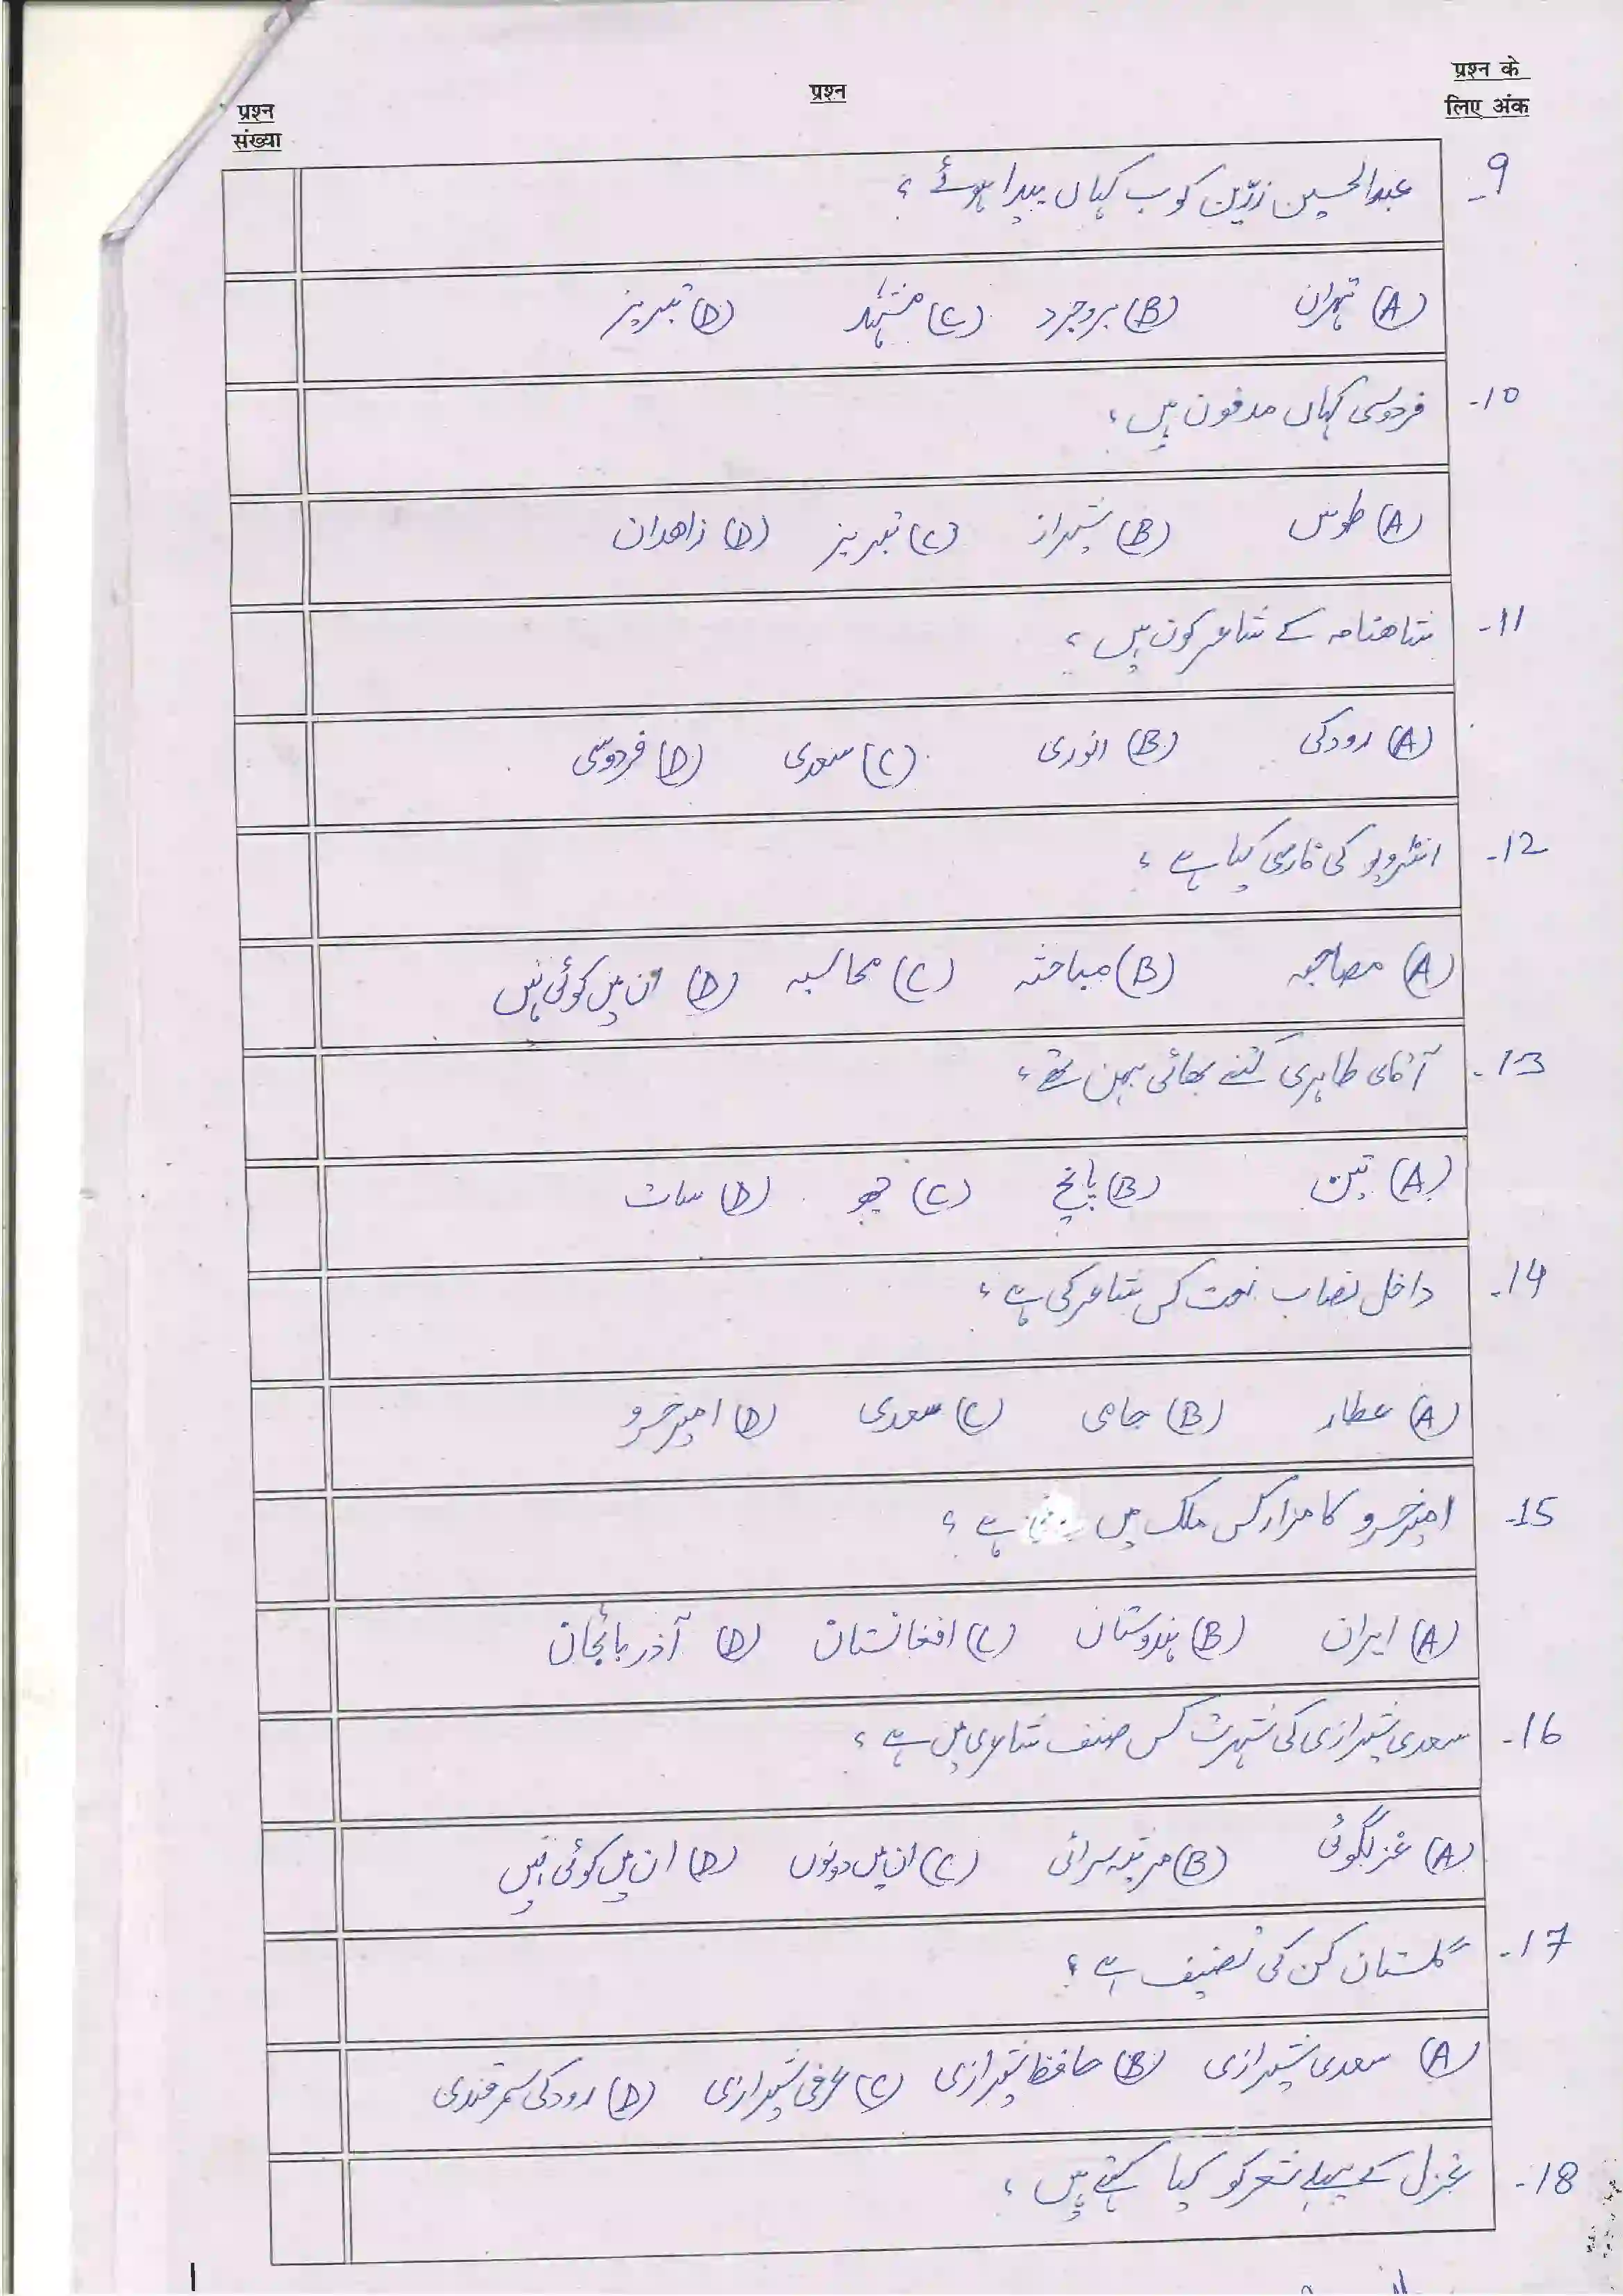 प्रश्न संख्या
प्रश्न
प्रश्न के लिए अंक
9- عبدالحسین زرّین کوب کہاں پیدا ہوئے ؟
(A) تہران (B) بروجرد (C) مشہد (D) تبریز
10- فردوسی کہاں مدفون ہیں ؟
(A) طوس (B) شیراز (C) تبریز (D) زاھدان
11- شاھنامہ کے شاعر کون ہیں ؟
(A) رودکی (B) انوری (C) سعدی (D) فردوسی
12- انٹرویو کی فارسی کیا ہے ؟
(A) مصاحبہ (B) مباحثہ (C) محاسبہ (D) ان میں کوئی نہیں
13- آقای طاہری کتنے بھائی بہن تھے ؟
(A) تین (B) پانچ (C) چھ (D) سات
14- داخل نصاب نعت کس شاعر کی ہے ؟
(A) عطار (B) جامی (C) سعدی (D) امیر خسرو
15- امیر خسرو کا مزار کس ملک میں ہے ؟
(A) ایران (B) ہندوستان (C) افغانستان (D) آذربائجان
16- سعدی شیرازی کی شہرت کس صنف شاعری میں ہے ؟
(A) غزلگوئی (B) مرثیہ سرائی (C) ان میں دونوں (D) ان میں کوئی نہیں
17- گلستان کن کی تصنیف ہے ؟
(A) سعدی شیرازی (B) حافظ شیرازی (C) عرفی شیرازی (D) رودکی سمرقندی
18- غزل کے پہلے شعر کو کیا کہتے ہیں ؟